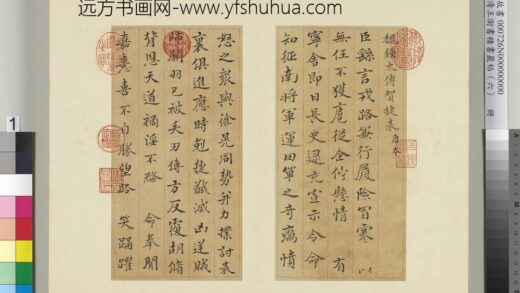 远方书画网-www.yfshuhua.com
魏鍾太傅賀捷表
臣繇言戎路無行履險冒寒以
無任不獲扈從企佇懸情有
寧舍即日長史逯充宣示令命
知征南將軍運田單之奇厲憤
怒之衆與徐晃同勢并力撲討表
裏俱進應時剋捷馘滅凶逆賊
帥關羽已被矢刃傅方反覆胡脩
背恩天道禍淫不終命奉聞
嘉憙喜不自勝望路笑踊躍
1